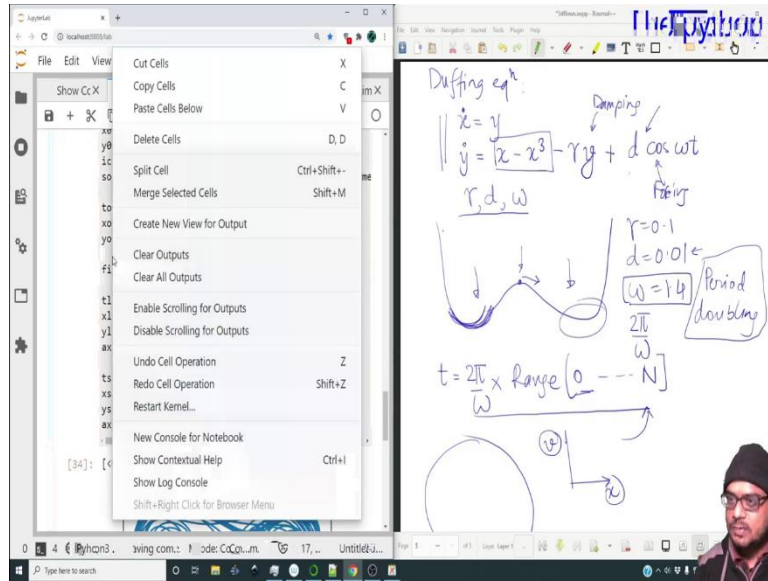 JupyterLab
localhost:8888/lab
File Edit View
Show Cc X
im X
Cut Cells X
Copy Cells C
Paste Cells Below V
Delete Cells D, D
Split Cell Ctrl+Shift+-
Merge Selected Cells Shift+M
Create New View for Output
Clear Outputs
Clear All Outputs
Enable Scrolling for Outputs
Disable Scrolling for Outputs
Undo Cell Operation Z
Redo Cell Operation Shift+Z
Restart Kernel...
New Console for Notebook
Show Contextual Help Ctrl+I
Show Log Console
Shift+Right Click for Browser Menu
x0
y0
ic
so
me
to
xo
yo
fi
tl
xl
yl
ax
ts
xs
ys
ax
[34]: [<
0 4
17, ..
Type here to search
File Edit View Navigation Journal Tools Plugin Help
Duffing eqⁿ.
Damping
ẋ = y
ẏ = x - x³ - γy + d cos ωt
Forcing
γ, d, ω
γ = 0.1
d = 0.01 ←
ω = 1.4
Period doubling
2π/ω
t = 2π/ω × Range [0 --- N]
v
x
Page 1 of 1 Layer